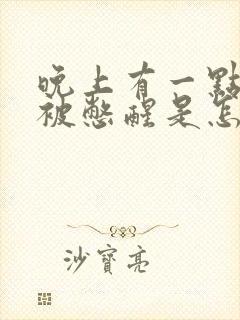 晚上有一點
被憋醒是怎
沙寶亮